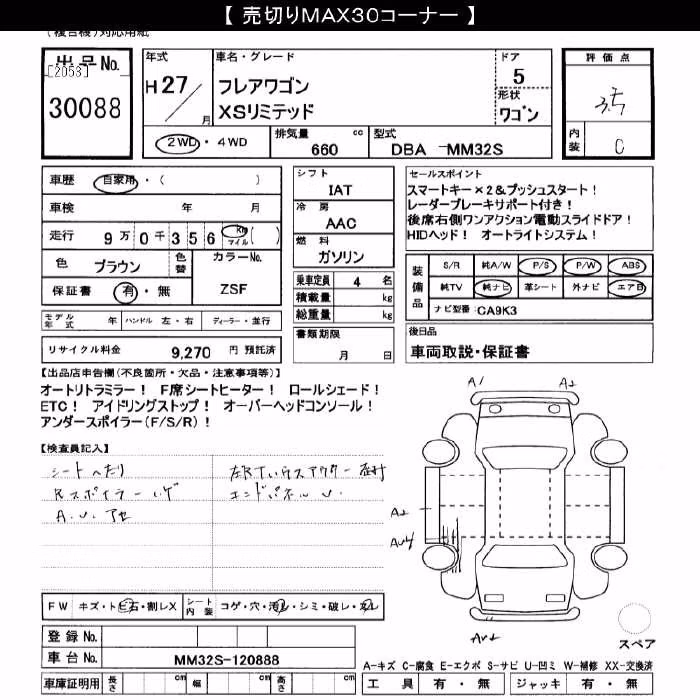 【 売切りMAX30コーナー 】
(複合機)対応用紙
出品No.
[2053]
30088
年式
H 27 / 月
車名・グレード
フレアワゴン
XSリミテッド
ドア
5
形状
ワゴン
評価点
3.5
内装
C
2WD・4WD
排気量 cc
660
型式
DBA -MM32S
車歴 自家用・( )
車検 年 月
走行 9万0千356 km マイル ( )
色 ブラウン 色替
カラーNo.
ZSF
保証書 有・無
モデル年式 年 ハンドル 左・右 ディーラー・並行
リサイクル料金 9,270 円 預託済
シフト
IAT
冷房
AAC
燃料
ガソリン
乗車定員 4 名
積載量 kg
総重量 kg
書類期限
月 日
セールスポイント
スマートキー×2&プッシュスタート!
レーダーブレーキサポート付き!
後席右側ワンアクション電動スライドドア!
HIDヘッド! オートライトシステム!
装備品
S/R 純A/W P/S P/W ABS
純TV 純ナビ 革シート 外ナビ エアB
ナビ型番 CA9K3
後日品
車両取説・保証書
【出品店申告欄(不良箇所・欠品・注意事項等)】
オートリトラミラー! F席シートヒーター! ロールシェード!
ETC! アイドリングストップ! オーバーヘッドコンソール!
アンダースポイラー(F/S/R)!
【検査員記入】
シートヘタリ
Rスポイラー
A.U.
エンドパネル U.
A1 A2
A2
AU4
AU2
FW キズ・トビ石・割レX
シート内装 コゲ・穴・汚レ・シミ・破レ・スレ
登録No.
車台No. MM32S-120888
車庫証明用 長さ cm 幅 cm 高さ cm
スペア
A-キズ C-腐食 E-エクボ S-サビ U-凹ミ W-補修 XX-交換済
工具 有・無 ジャッキ 有・無